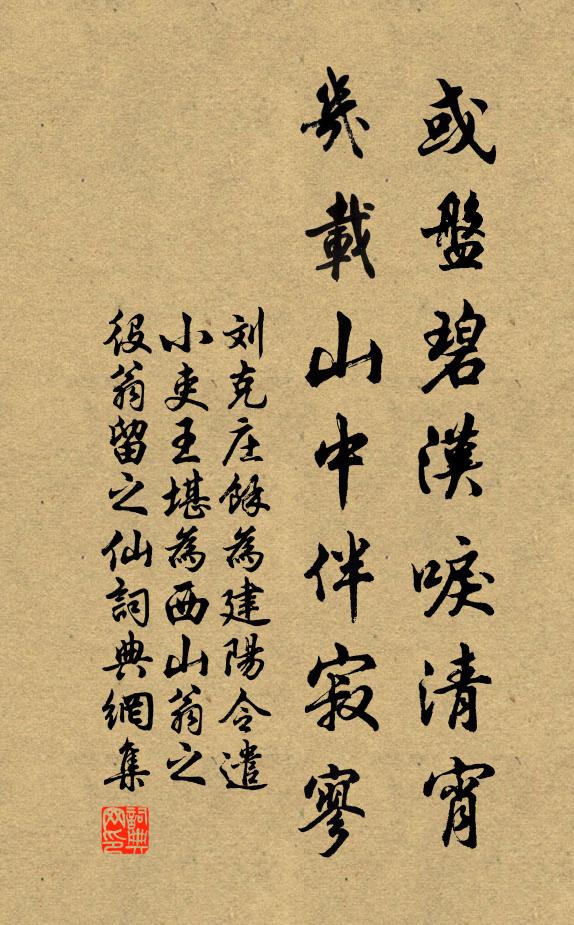 或盤碧漢唳清宵
幾載山中伴寂寥
刘克庄餘為建陽令遣
小吏王堪為西山翁之
役翁留之仙詞典網集
詞典
网印